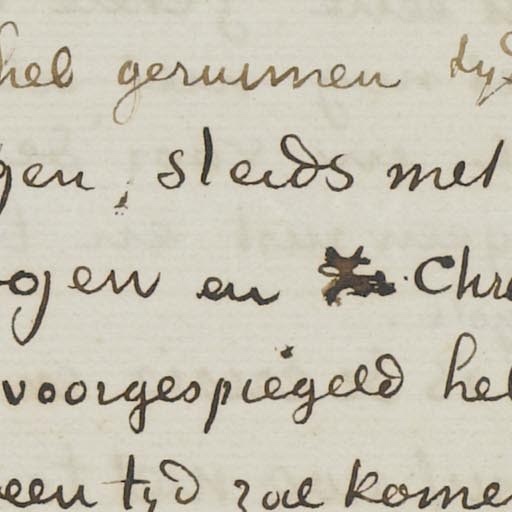 heb geruimen tyd
gen, steeds met
ogen en Chr
voorgespiegeld heb
een tyd zal kome